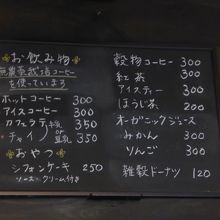 お飲み物
無農薬栽培コーヒー
を使っています
ホットコーヒー 300
アイスコーヒー 300
カフェラテ 牛乳 350
チャイ or 豆乳 350
おやつ
シフォンケーキ 250
ソース・クリーム付き
穀物コーヒー 300
紅茶 300
アイスティー 300
ほうじ茶 200
オーガニックジュース
みかん 300
りんご 300
雑穀ドーナツ 120